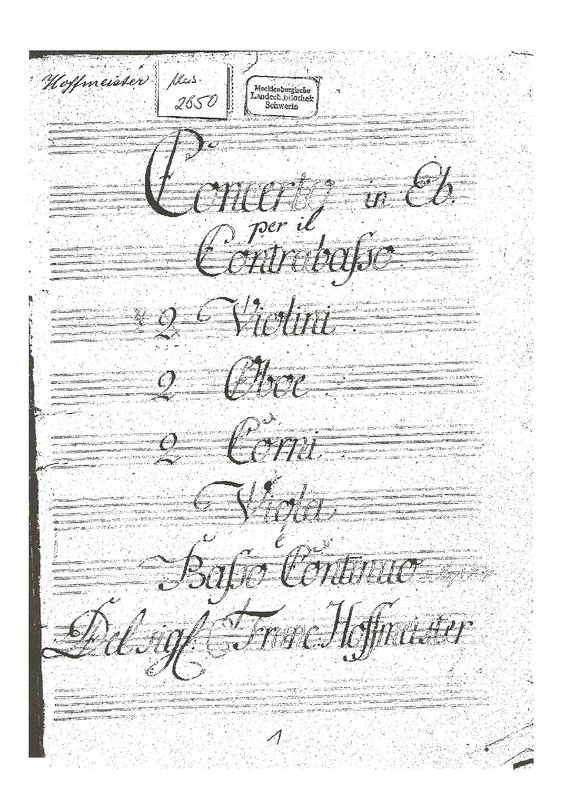 Hoffmeister
Mus.
2850
Mecklenburgische
Landesbibliothek
Schwerin
Concerto in Eb.
per il
Contrabaſso
2 Violini
2 Oboe
2 Corni
Viola
e
Baſso Continuo
Del sigl. Franc Hoffmeister
1